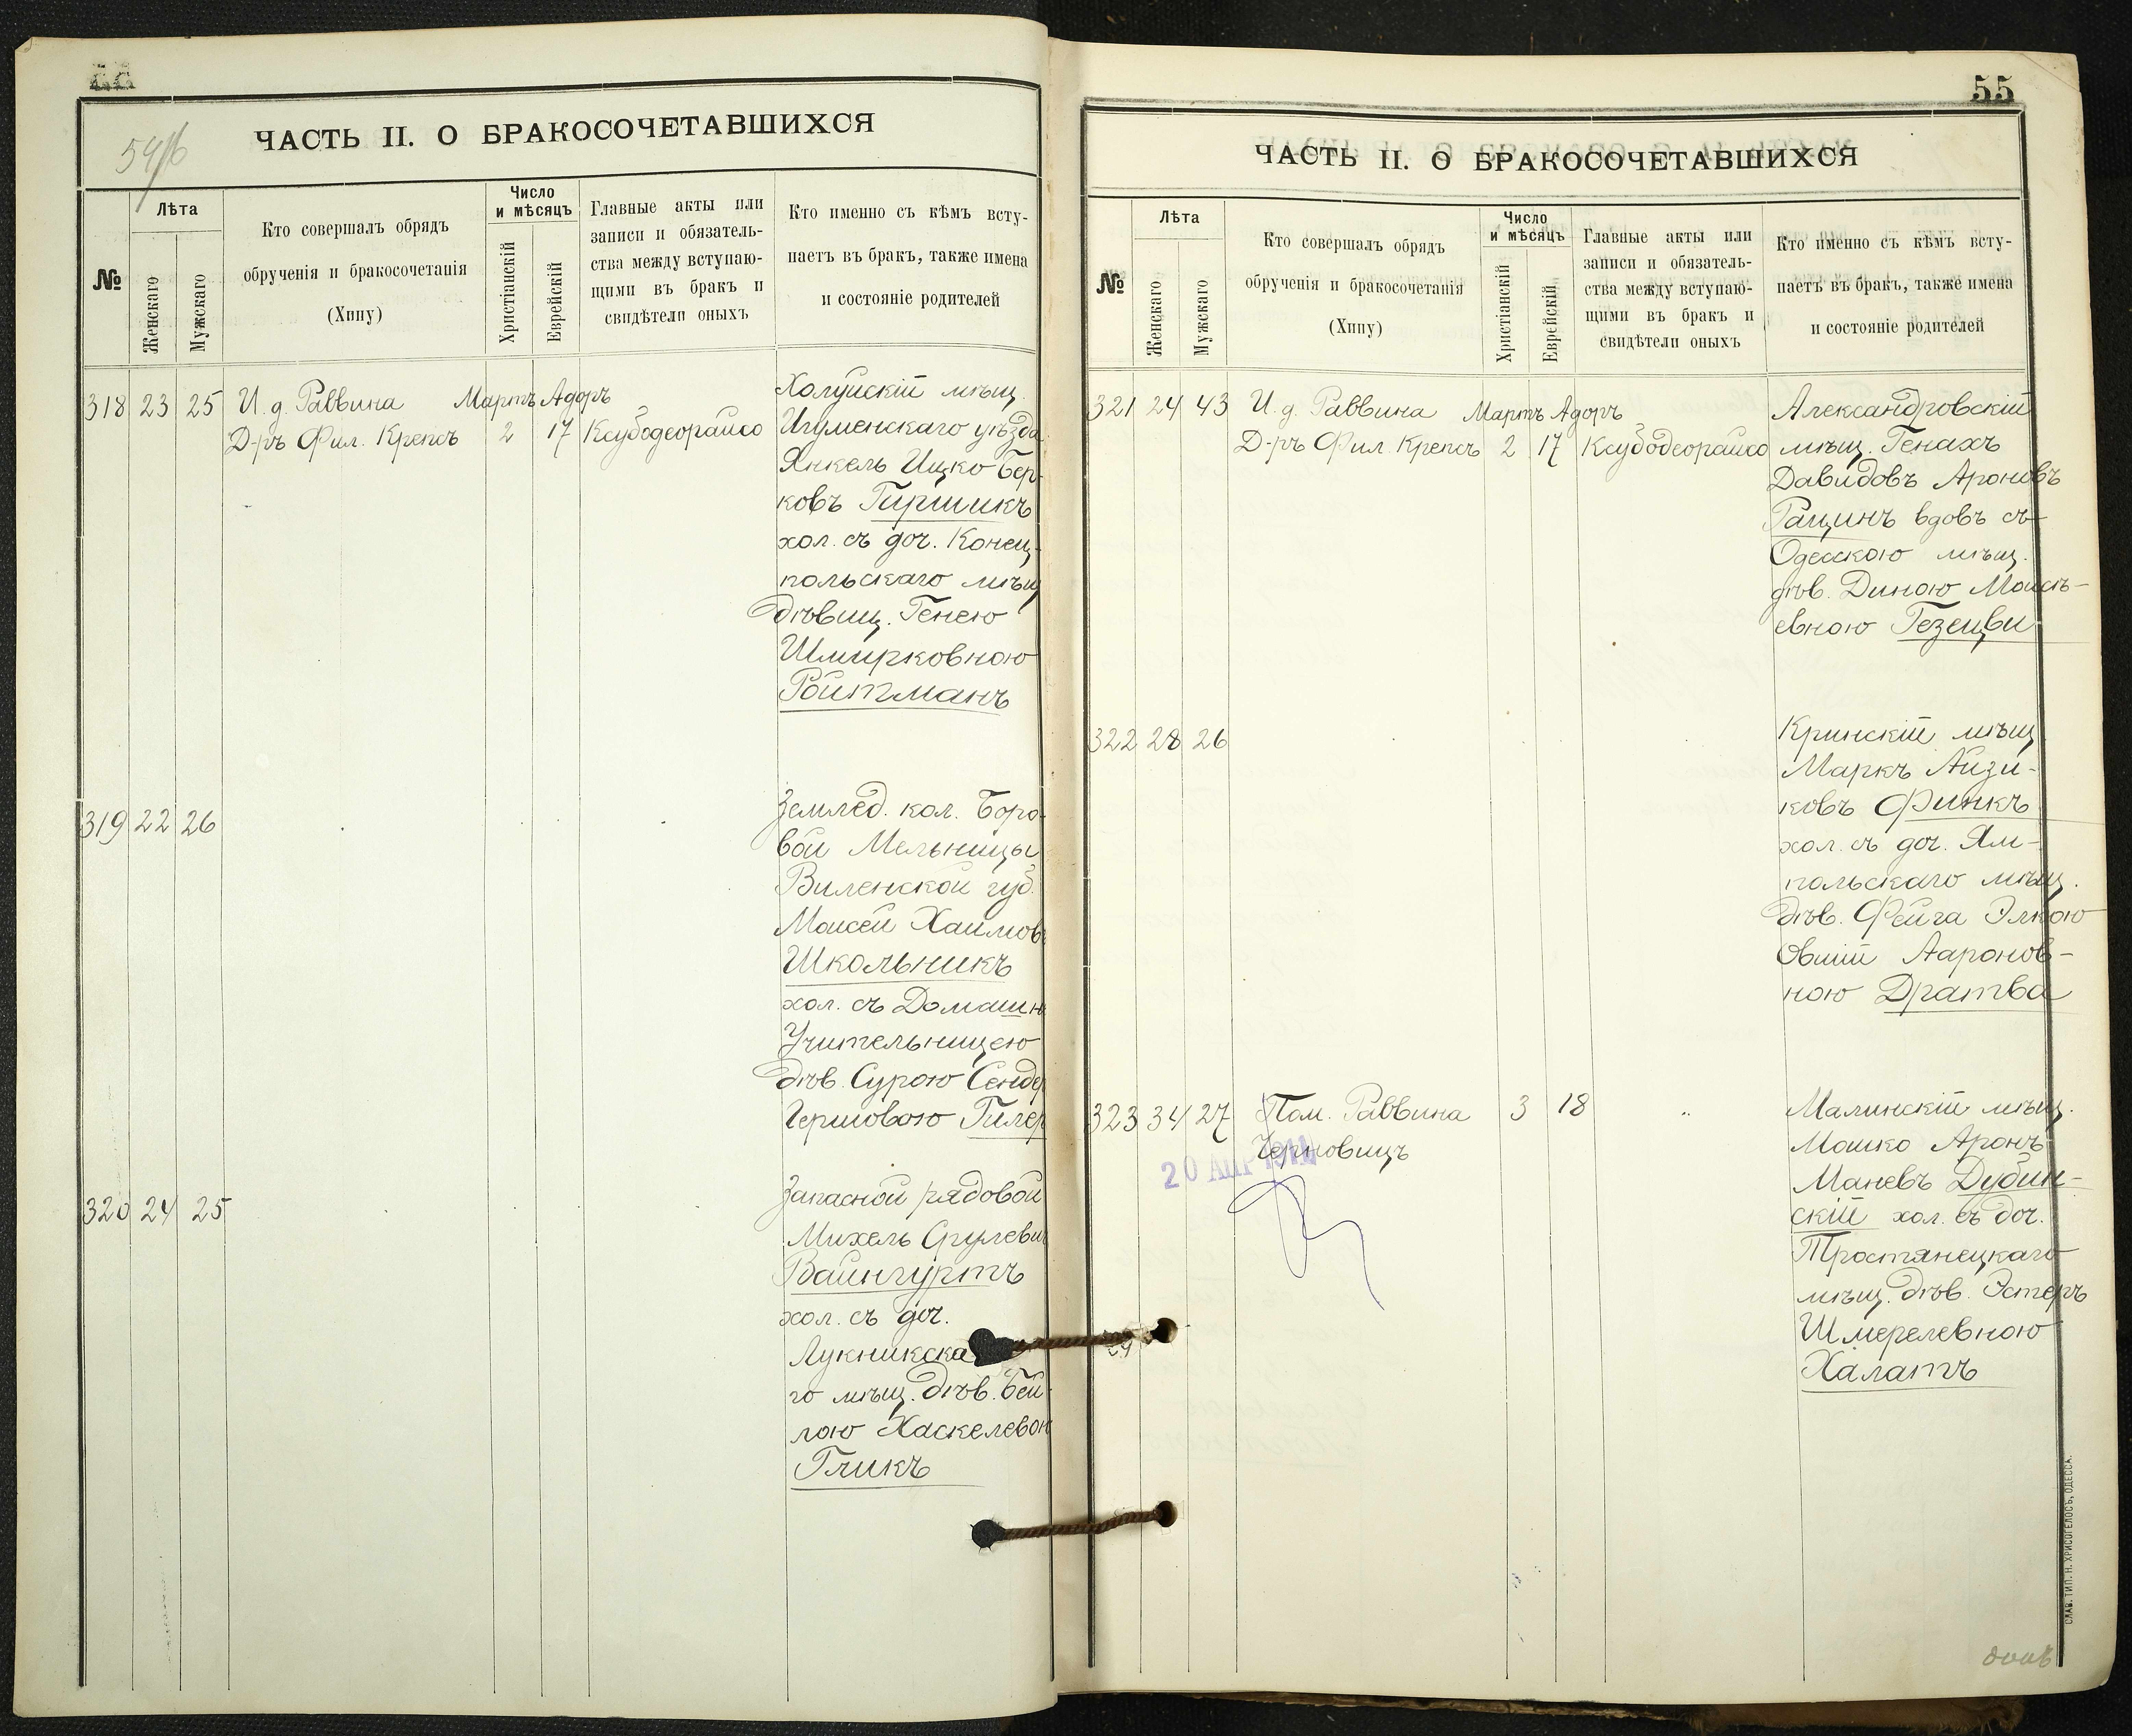 54/б
ЧАСТЬ II. О БРАКОСОЧЕТАВШИХСЯ
№
Лѣта
Женскаго
Мужскаго
Кто совершалъ обрядъ
обрученія и бракосочетанія
(Хипу)
Число
и мѣсяцъ
Христіанскій
Еврейскій
Главные акты или
записи и обязатель-
ства между вступаю-
щими въ бракъ и
свидѣтели оныхъ
Кто именно съ кѣмъ всту-
паетъ въ бракъ, также имена
и состояніе родителей
318 23 25 И. д. Раввина Мартъ Адоръ
Д-ръ Фил. Крепсъ 2 17 Ксубодеорайсо
Холуйскій мѣщ.
Игуменскаго уѣзда
Янкель Ицко Бер-
ковъ Гиршикъ
хол. съ доч. Конец-
польскаго мѣщ
дѣвиц. Генею
Шмирковною
Ройтманъ
319 22 26
Землед. кол. Боро-
вой Мельницы
Виленской губ.
Моисей Хаимовъ
Школьникъ
хол. съ Домашн
Учительницею
дѣв. Сурою Сендер
Гершовою Гилер
320 24 25
Запасной рядовой
Михель Срулевич
Вайнгуртъ
хол. съ доч.
Лукникска
го мѣщ. дѣв. Бей-
лою Хаскелевон
Гликъ
55
ЧАСТЬ II. О БРАКОСОЧЕТАВШИХСЯ
№
Лѣта
Женскаго
Мужскаго
Кто совершалъ обрядъ
обрученія и бракосочетанія
(Хипу)
Число
и мѣсяцъ
Христіанскій
Еврейскій
Главные акты или
записи и обязатель-
ства между вступаю-
щими въ бракъ и
свидѣтели оныхъ
Кто именно съ кѣмъ всту-
паетъ въ бракъ, также имена
и состояніе родителей
321 24 43 И. д. Раввина Мартъ Адоръ
Д-ръ Фил. Крепсъ 2 17 Ксубодеорайсо
Александровскій
мѣщ. Генахъ
Давидовъ Ароновъ
Рацинъ вдовъ съ
Одесскою мѣщ.
дѣв. Диною Моисѣ-
евною Гезецви
322 28 26
Кринскій мѣщ
Маркъ Айзи-
ковъ Финкъ
хол. съ доч. Ям-
польскаго мѣщ.
дѣв. Фейга Элкою
Овшій Ааронов-
ною Дратва
323 34 27 Пом. Раввина 3 18 "
Черновицъ
20 АПР 1911
Малинскій мѣщ.
Мошко Аронъ
Маневъ Дубин-
скій хол. съ доч.
Тростянецкаго
мѣщ. дѣв. Эстеръ
Шмерелевною
Халатъ
СЛАВ. ТИП. Н. ХРИСОГЕЛОСЪ, ОДЕССА.